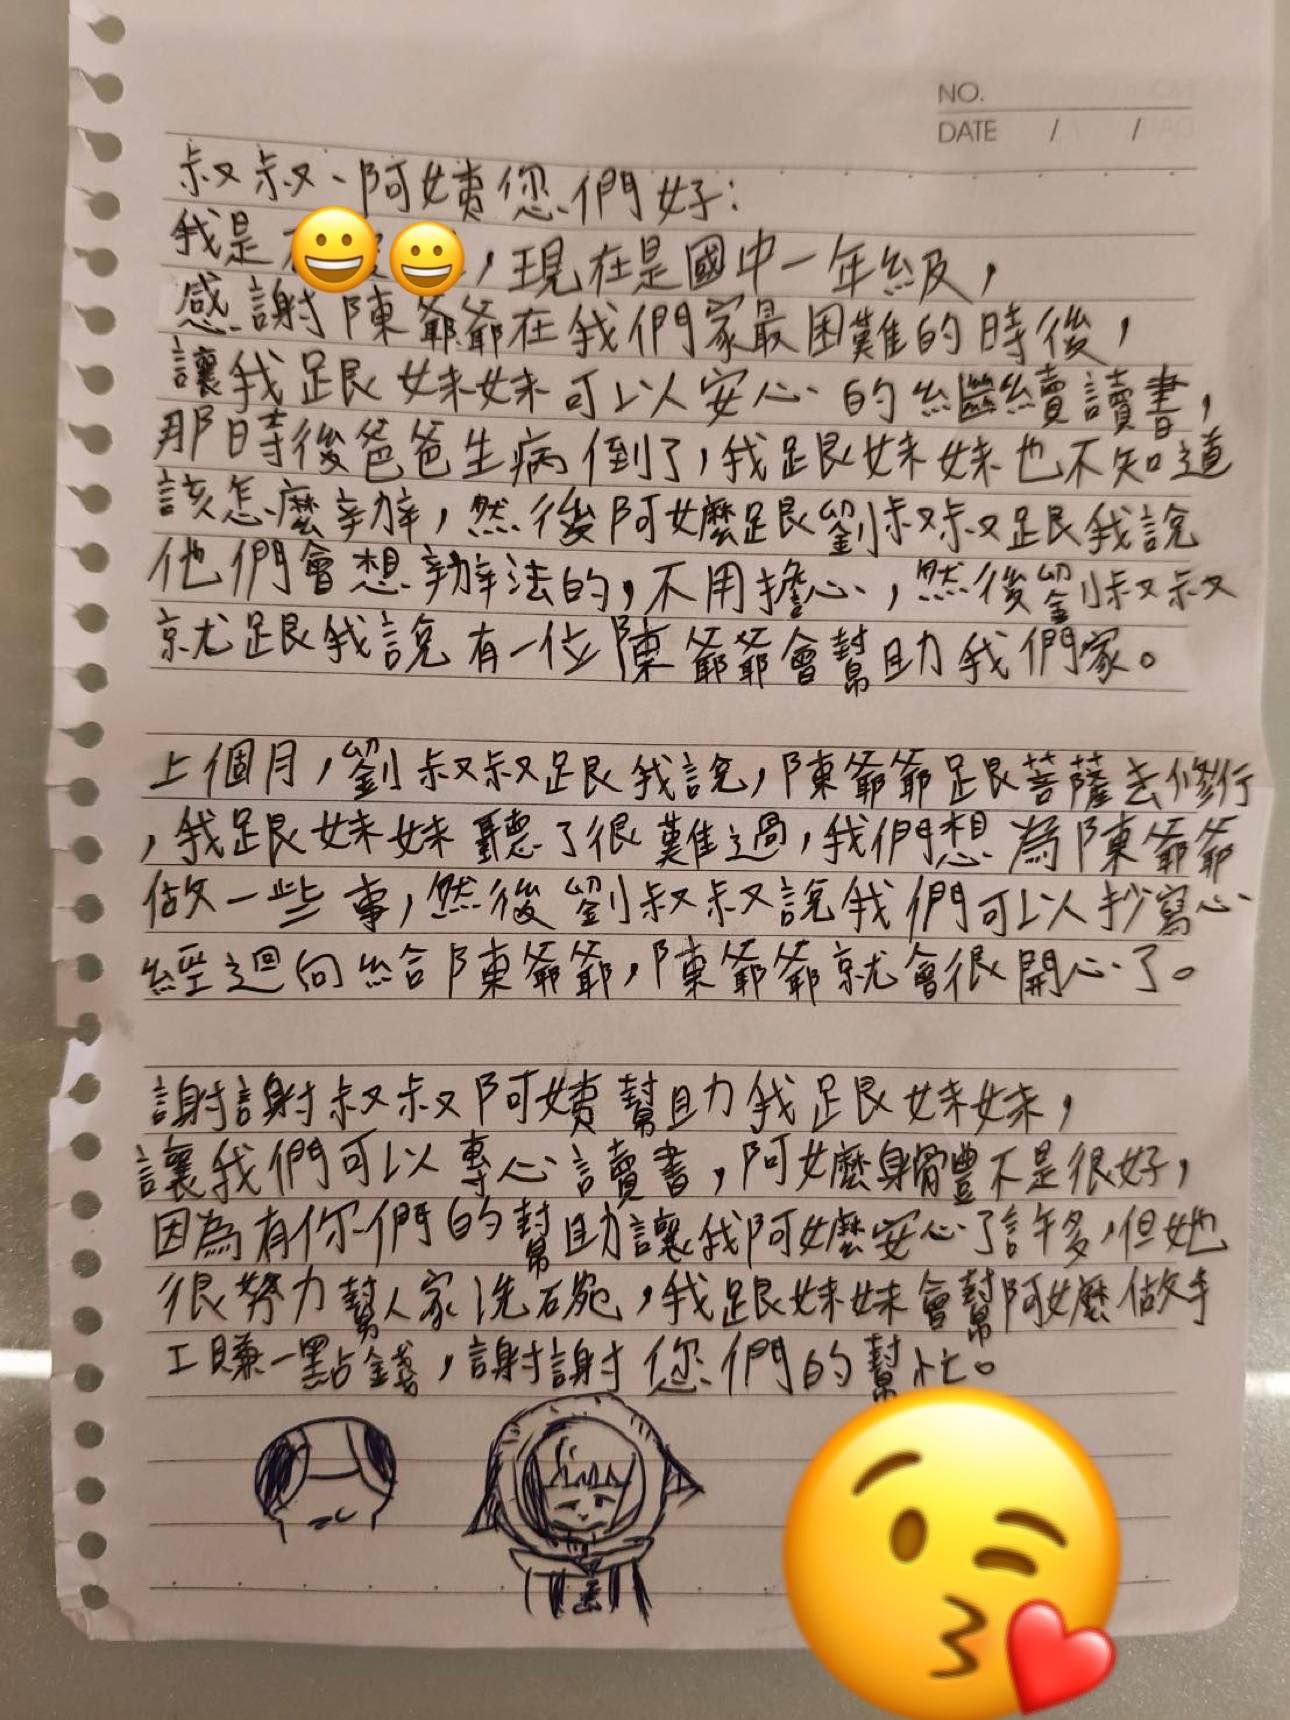 NO.
DATE / /
叔叔、阿姨您們好:
我是，現在是國中一年級，
感謝陳爺爺在我們家最困難的時後，
讓我跟妹妹可以安心的繼續讀書，
那時後爸爸生病倒了，我跟妹妹也不知道
該怎麼辦，然後阿嬤跟劉叔叔跟我說
他們會想辦法的，不用擔心，然後劉叔叔
就跟我說有一位陳爺爺會幫助我們家。
上個月，劉叔叔跟我說，陳爺爺跟菩薩去修行
，我跟妹妹聽了很難過，我們想為陳爺爺
做一些事，然後劉叔叔說我們可以抄寫心
經迴向給陳爺爺，陳爺爺就會很開心了。
謝謝叔叔阿姨幫助我跟妹妹，
讓我們可以專心讀書，阿嬤身體不是很好，
因為有你們的幫助讓我阿嬤安心了許多，但她
很努力幫人家洗碗，我跟妹妹會幫阿嬤做手
工賺一點錢，謝謝您們的幫忙。